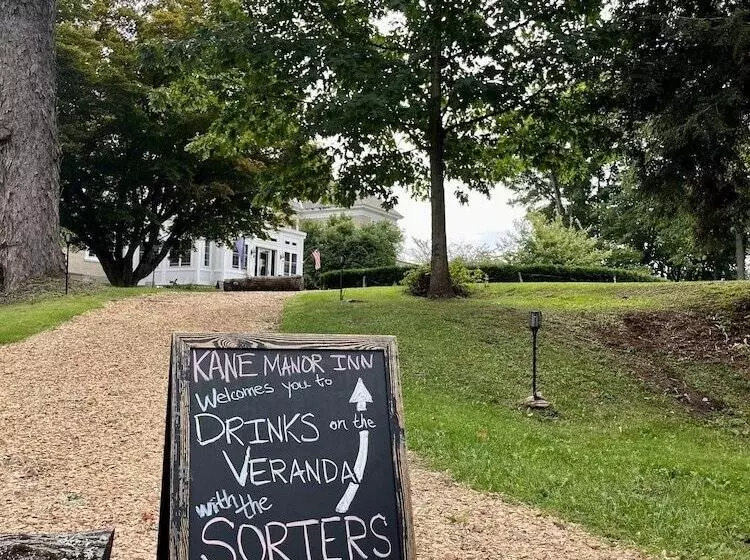 KANE MANOR INN
Welcomes you to
DRINKS on the
VERANDA
with the
SORTERS